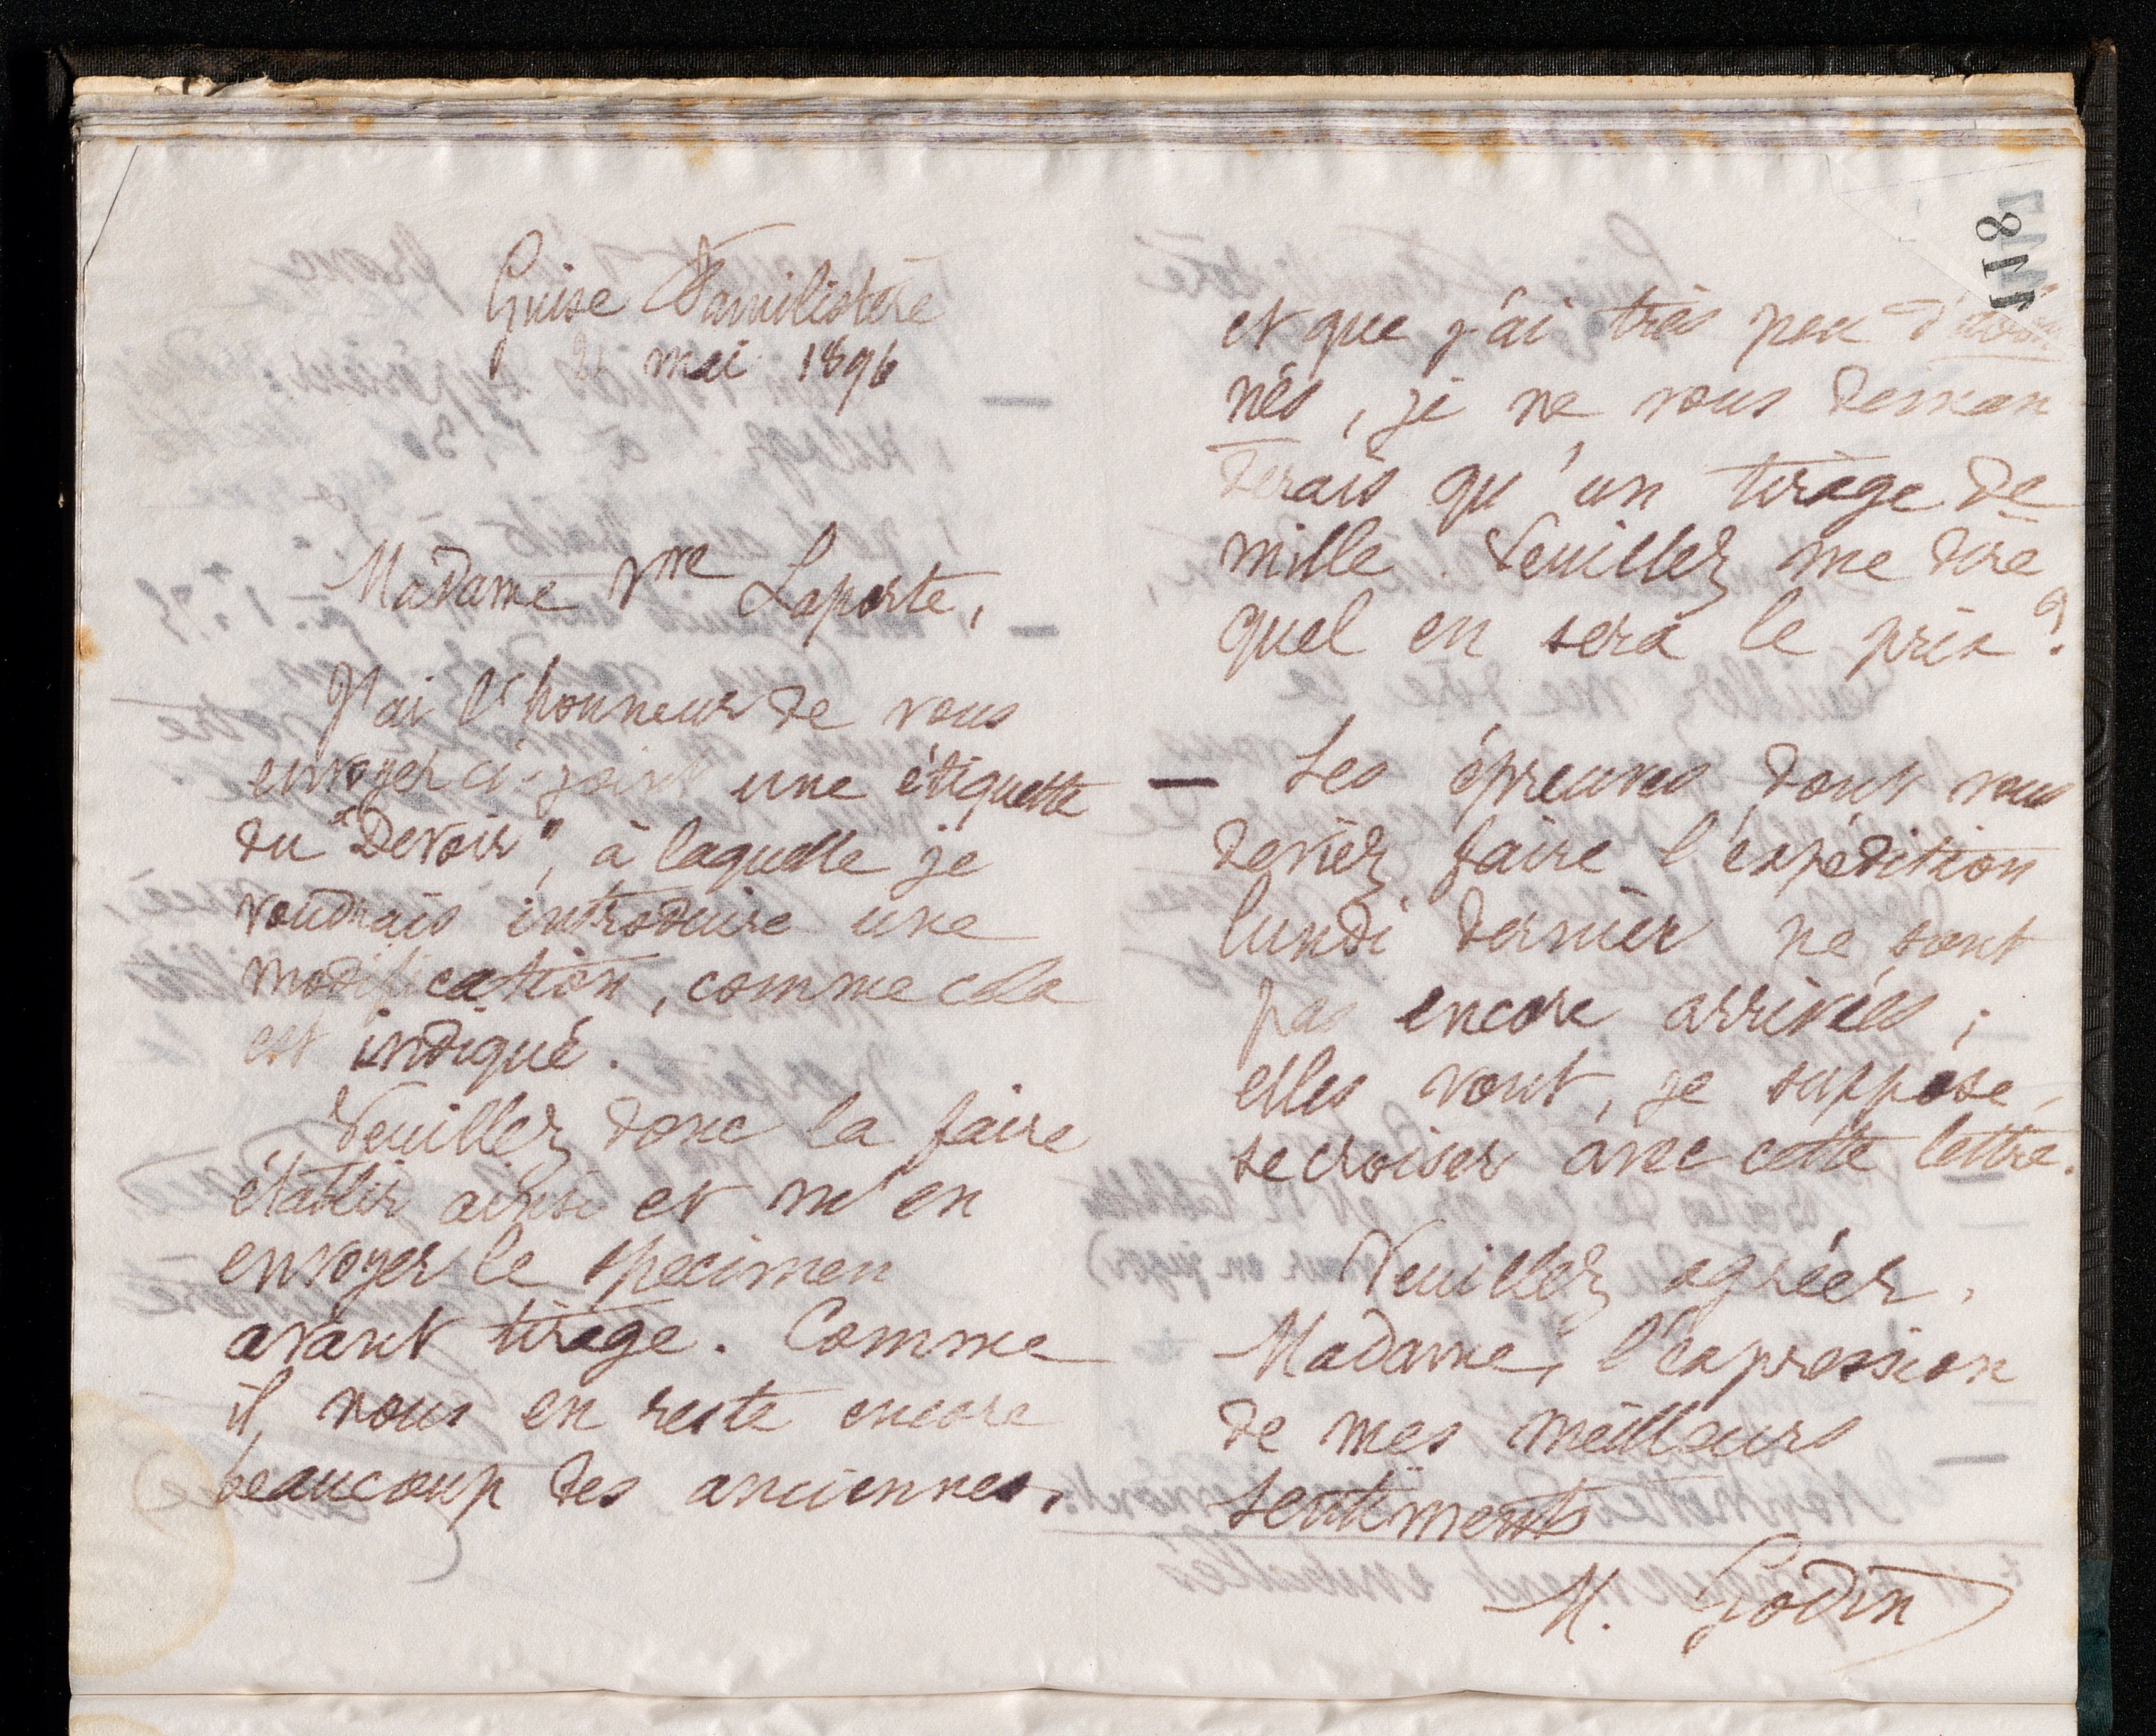 Guise Familistère
2 mai 1896
Madame Vve Laporte,
J'ai l'honneur de vous
envoyer ci-joint une étiquette
du "Devoir", à laquelle je
voudrais introduire une
modification, comme cela
est indiqué.
Veuillez donc la faire
établir ainsi et m'en
envoyer le specimen
avant tirage. Comme
il nous en reste encore
beaucoup des anciennes,
118
et que j'ai très peu d'abon
nés, je ne vous deman
derais qu'un tirage de
mille. Veuillez me dire
quel en sera le prix ?
— Les épreuves dont vous
deviez faire l'expédition
lundi dernier ne sont
pas encore arrivées ;
elles vont, je suppose,
se croiser avec cette lettre.
Veuillez agréer,
Madame, l'expression
de mes meilleurs
sentiments
M. Godin